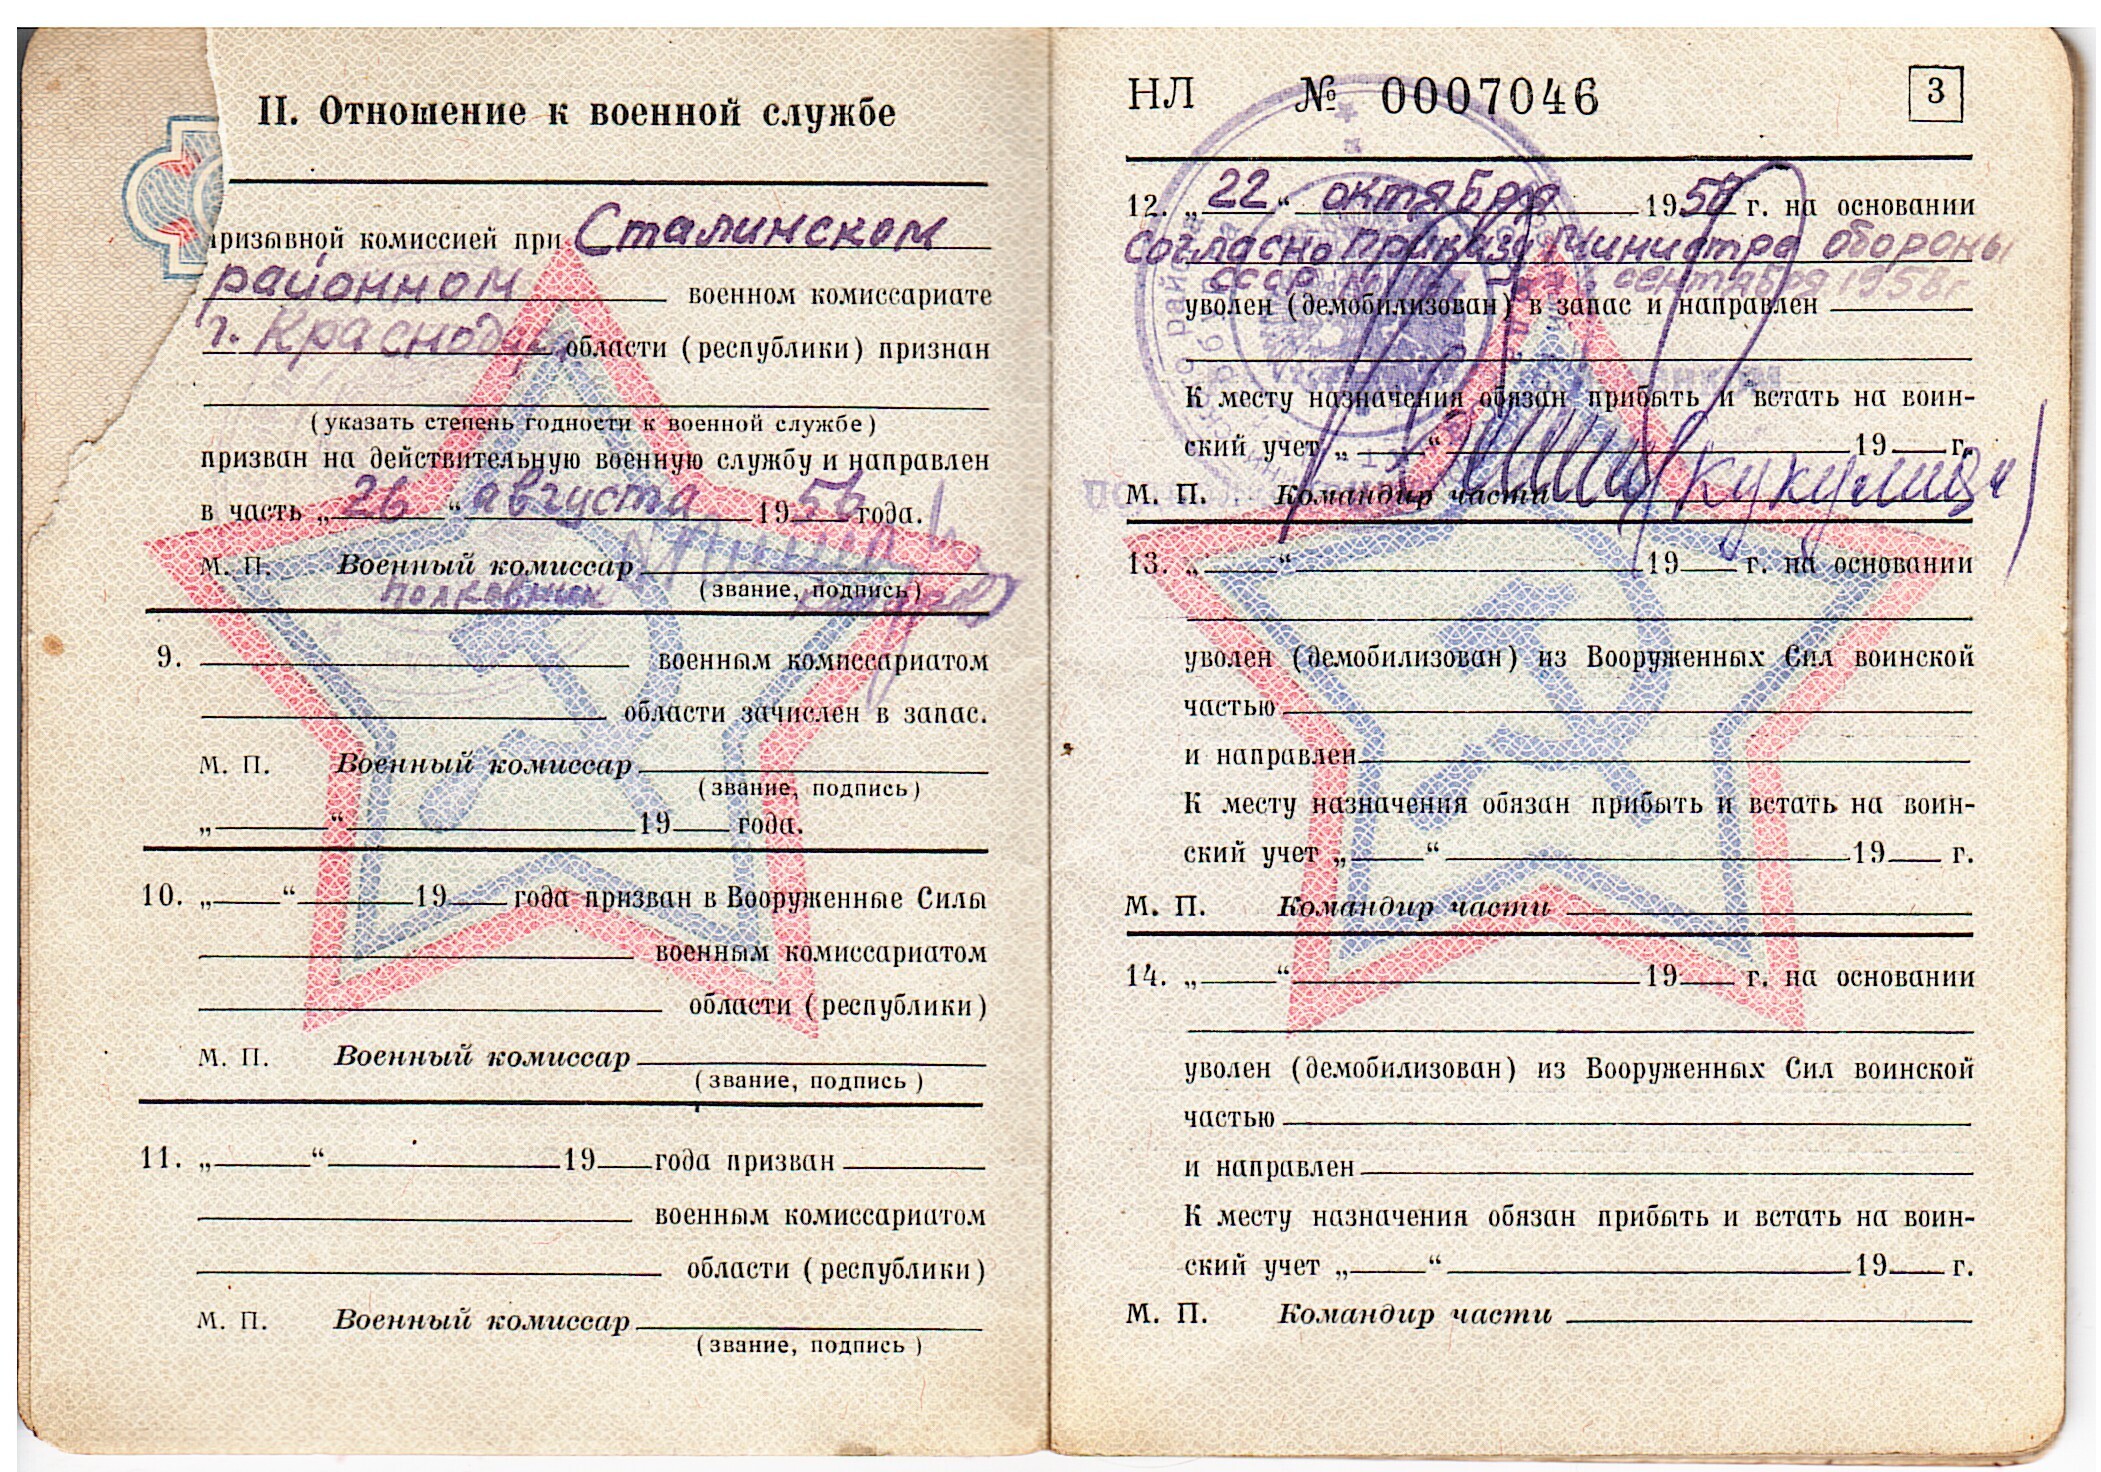 II. Отношение к военной службе
призывной комиссией при Сталинском
районном военном комиссариате
г. Краснодар области (республики) признан
(указать степень годности к военной службе)
призван на действительную военную службу и направлен
в часть „26“ августа 1956 года.
М. П. Военный комиссар
полковник (звание, подпись)
9. военным комиссариатом
области зачислен в запас.
М. П. Военный комиссар
(звание, подпись)
„ “ 19 года.
10. „ “ 19 года призван в Вооруженные Силы
военным комиссариатом
области (республики)
М. П. Военный комиссар
(звание, подпись)
11. „ “ 19 года призван
военным комиссариатом
области (республики)
М. П. Военный комиссар
(звание, подпись)
НЛ № 0007046 3
12. „22“ октября 1958 г. на основании
согласно Приказа Министра обороны
СССР сентября 1958г
уволен (демобилизован) в запас и направлен
К месту назначения обязан прибыть и встать на воин-
ский учет „ “ 19 г.
М. П. Командир части
13. „ “ 19 г. на основании
уволен (демобилизован) из Вооруженных Сил воинской
частью
и направлен
К месту назначения обязан прибыть и встать на воин-
ский учет „ “ 19 г.
М. П. Командир части
14. „ “ 19 г. на основании
уволен (демобилизован) из Вооруженных Сил воинской
частью
и направлен
К месту назначения обязан прибыть и встать на воин-
ский учет „ “ 19 г.
М. П. Командир части